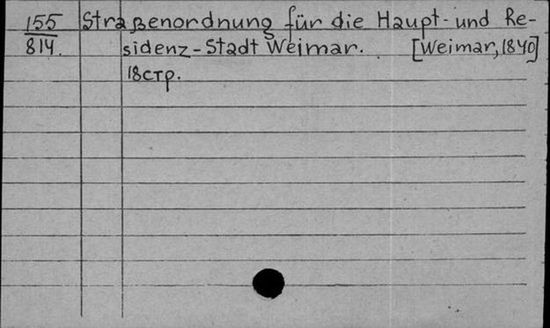 155 Straßenordnung für die Haupt- und Re-
814. sidenz-Stadt Weimar. [Weimar, 1840]
18стр.